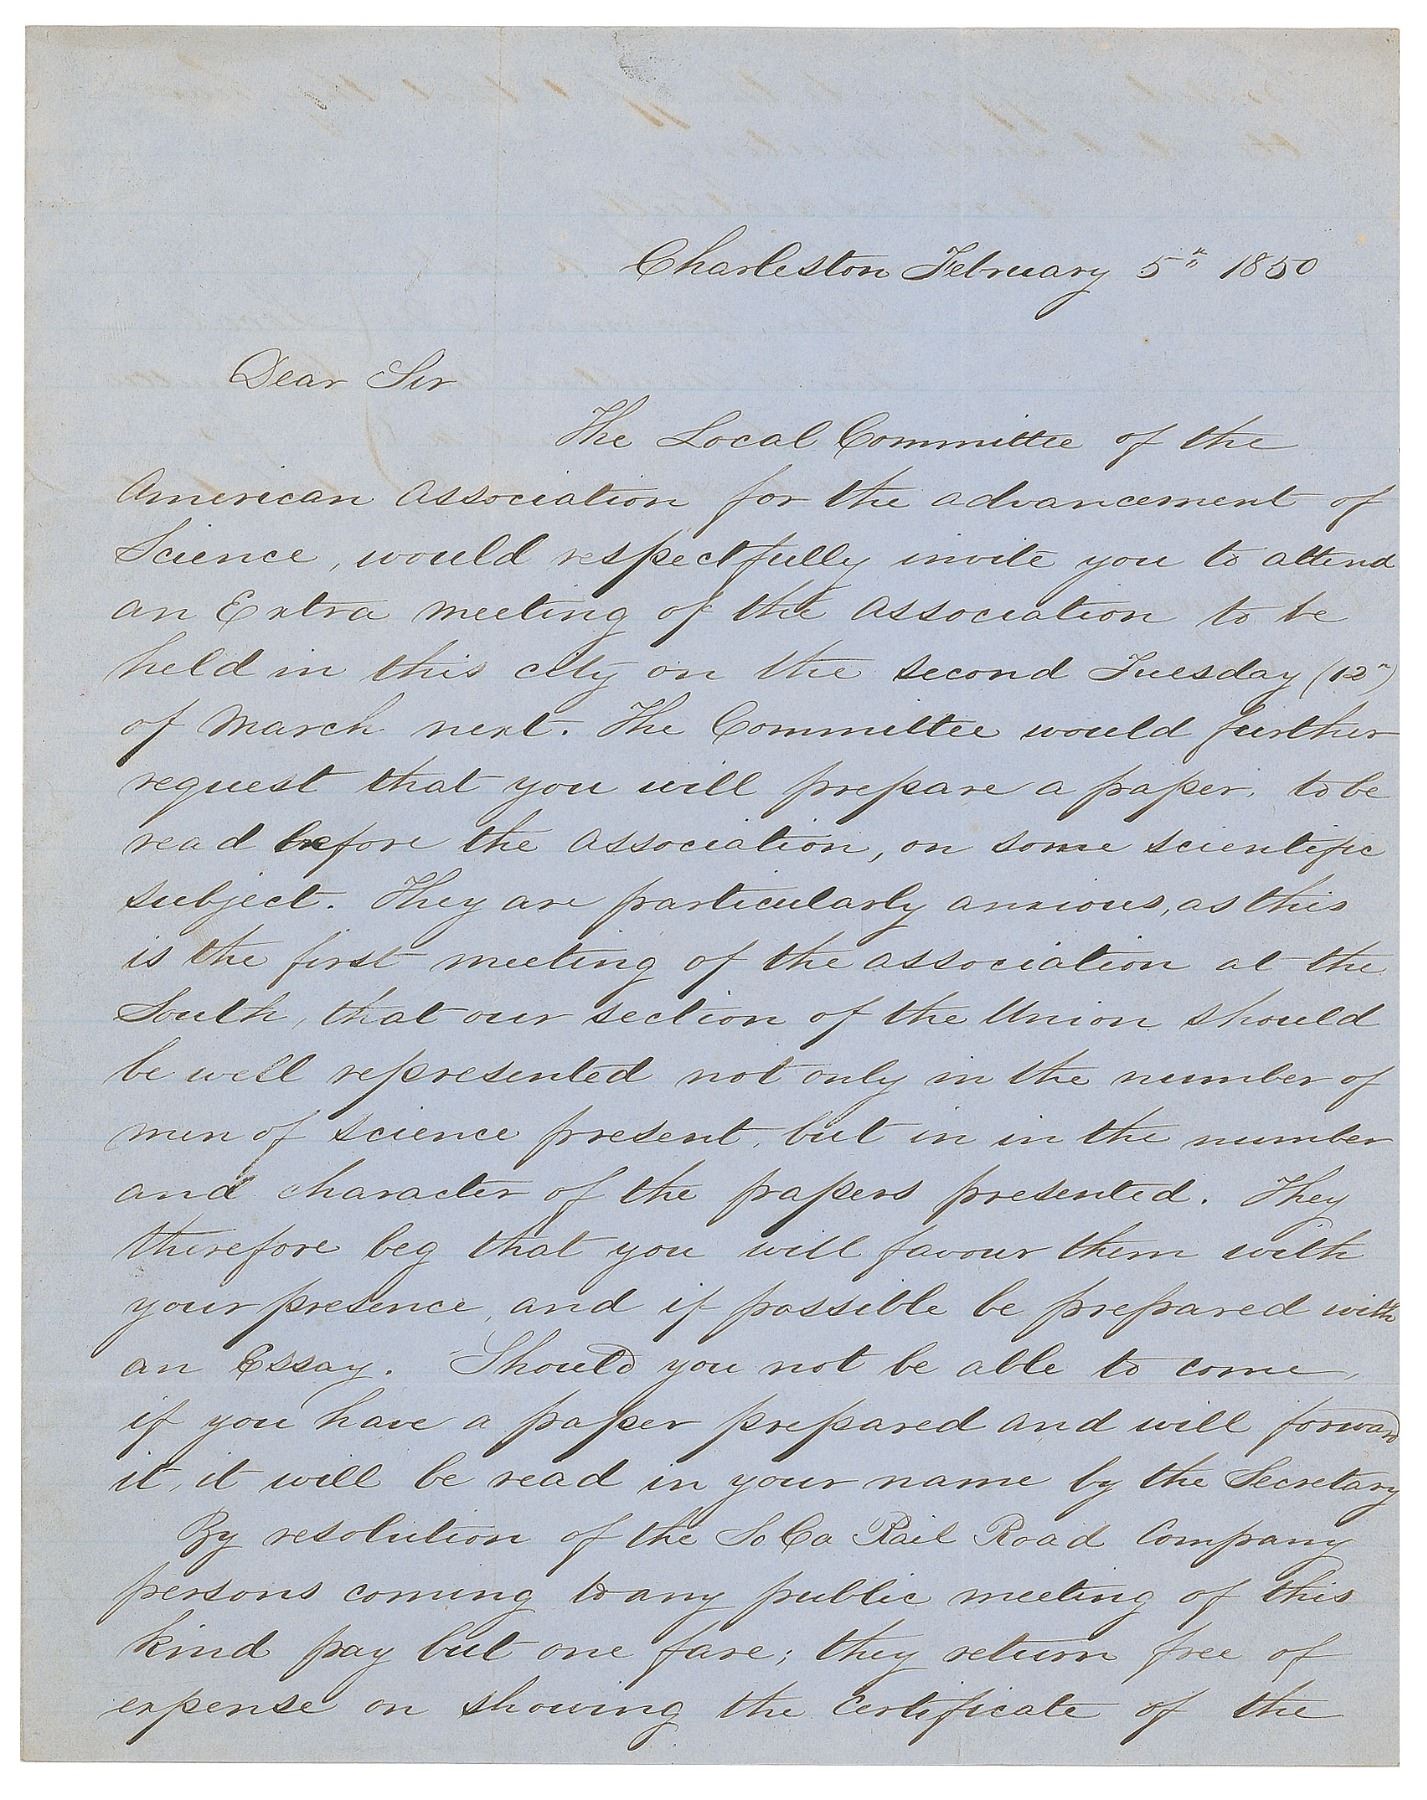 Charleston February 5th 1850
Dear Sir
The Local Committee of the
American Association for the advancement of
Science, would respectfully invite you to attend
an Extra meeting of the Association to be
held in this city on the second Tuesday (12th)
of March next. The Committee would further
request that you will prepare a paper, to be
read before the Association, on some scientific
subject. They are particularly anxious, as this
is the first meeting of the association at the
South, that our section of the Union should
be well represented not only in the number of
men of science present, but in in the number
and character of the papers presented. They
therefore beg that you will favour them with
your presence, and if possible be prepared with
an Essay. Should you not be able to come,
if you have a paper prepared and will forward
it, it will be read in your name by the Secretary
By resolution of the So Ca Rail Road Company
persons coming to any public meeting of this
kind pay but one fare; they return free of
expense on showing the certificate of the